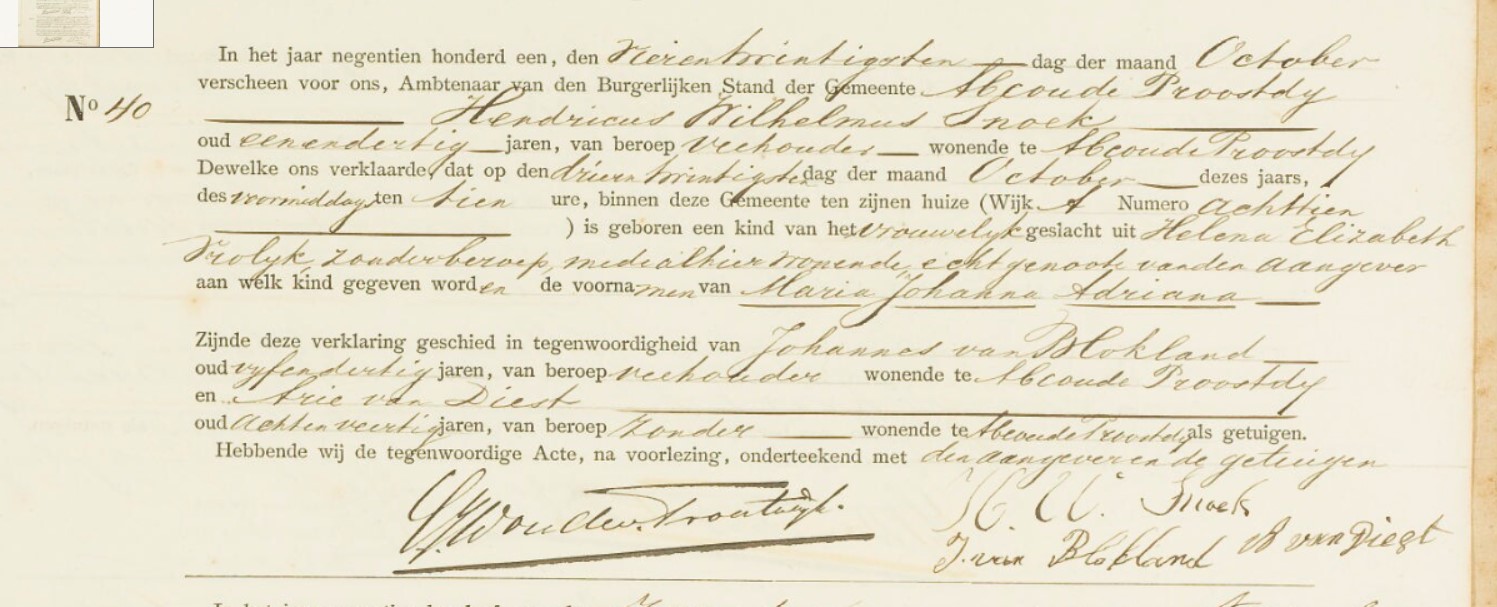 In het jaar negentien honderd een, den vierentwintigsten dag der maand October
verscheen voor ons, Ambtenaar van den Burgerlijken Stand der Gemeente Abcoude Proostdy
No 40
Hendricus Wilhelmus Snoek
oud eenendertig jaren, van beroep veehouder wonende te Abcoude Proostdy
Dewelke ons verklaarde, dat op den drieentwintigsten dag der maand October dezes jaars,
des voormiddags ten tien ure, binnen deze Gemeente ten zijnen huize (Wijk A Numero achttien
) is geboren een kind van het vrouwelyk geslacht uit Helena Elizabeth
Vrolyk, zonder beroep, mede alhier wonende, echtgenoote van den aangever
aan welk kind gegeven worden de voornamen van Maria Johanna Adriana
Zijnde deze verklaring geschied in tegenwoordigheid van Johannes van Blokland
oud vyfendertig jaren, van beroep veehouder wonende te Abcoude Proostdy
en Arie van Diest
oud achtenveertig jaren, van beroep zonder wonende te Abcoude Proostdy als getuigen.
Hebbende wij de tegenwoordige Acte, na voorlezing, onderteekend met den aangever en de getuigen
H. W. Snoek
J. van Blokland van Diest